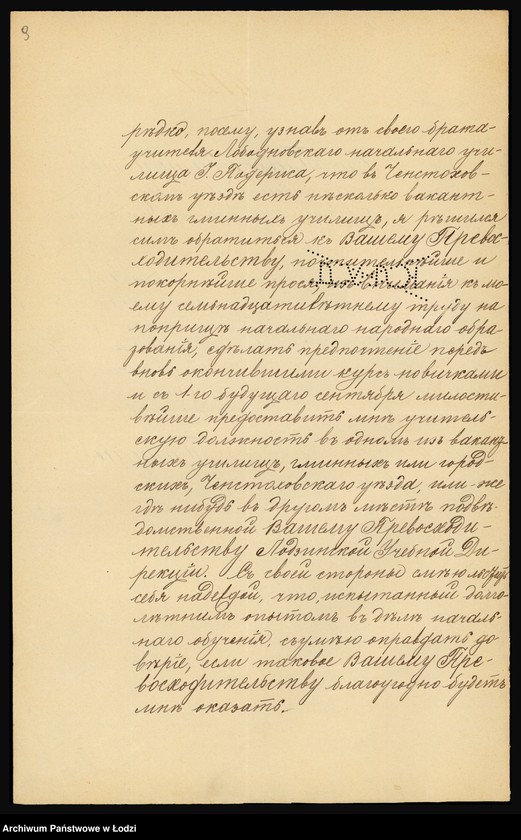 9
рѣдко, посему, узнавъ отъ своего брата-
учителя Лободновскаго начальнаго учи-
лища І. Подериса, что въ Ченстохов-
скомъ уѣздѣ есть нѣсколько вакант-
ныхъ гминныхъ училищъ, я рѣшился
симъ обратиться къ Вашему Превос-
ходительству, почтительнѣйше и
покорнѣйше прося, къ мо-
ему семьнадцатилѣтнему труду на
поприщѣ начальнаго народнаго обра-
зованія, сдѣлать предпочтеніе передъ
вновь окончившими курсъ новичками
и съ 1-го будущаго сентября милости-
вѣйше предоставить мнѣ учитель-
скую должность въ одномъ изъ вакант-
ныхъ училищъ, гминныхъ или город-
скихъ, Ченстоховскаго уѣзда, или-же
гдѣ нибудь въ другомъ мѣстѣ подвѣ-
домственной Вашему Превосходи-
тельству Лодзинской Учебной Ди-
рекціи. Съ своей стороны смѣю льстить
себя надеждой, что, испытанный долго-
лѣтнимъ опытомъ въ дѣлѣ началь-
наго обученія, съумѣю оправдать до-
вѣріе, если таковое Вашему Пре-
восходительству благоугодно будетъ
мнѣ оказать.
Archiwum Państwowe w Łodzi